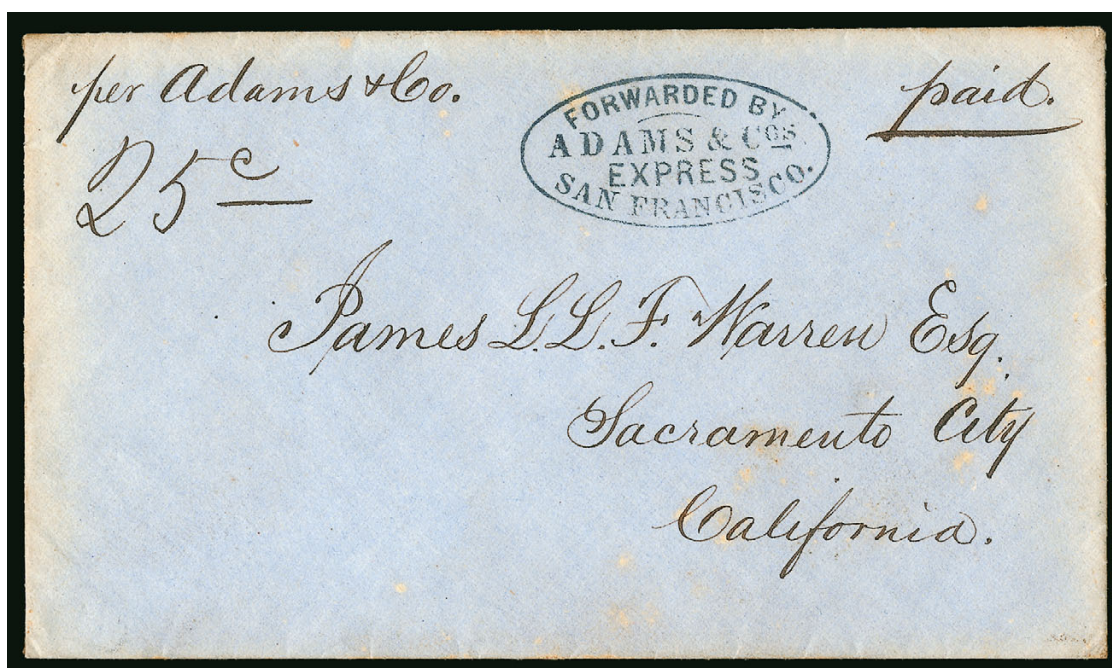 per Adams & Co.
25c
FORWARDED BY
ADAMS & COS
EXPRESS
SAN FRANCISCO.
paid.
James L.L.F. Warren Esq.
Sacramento City
California.